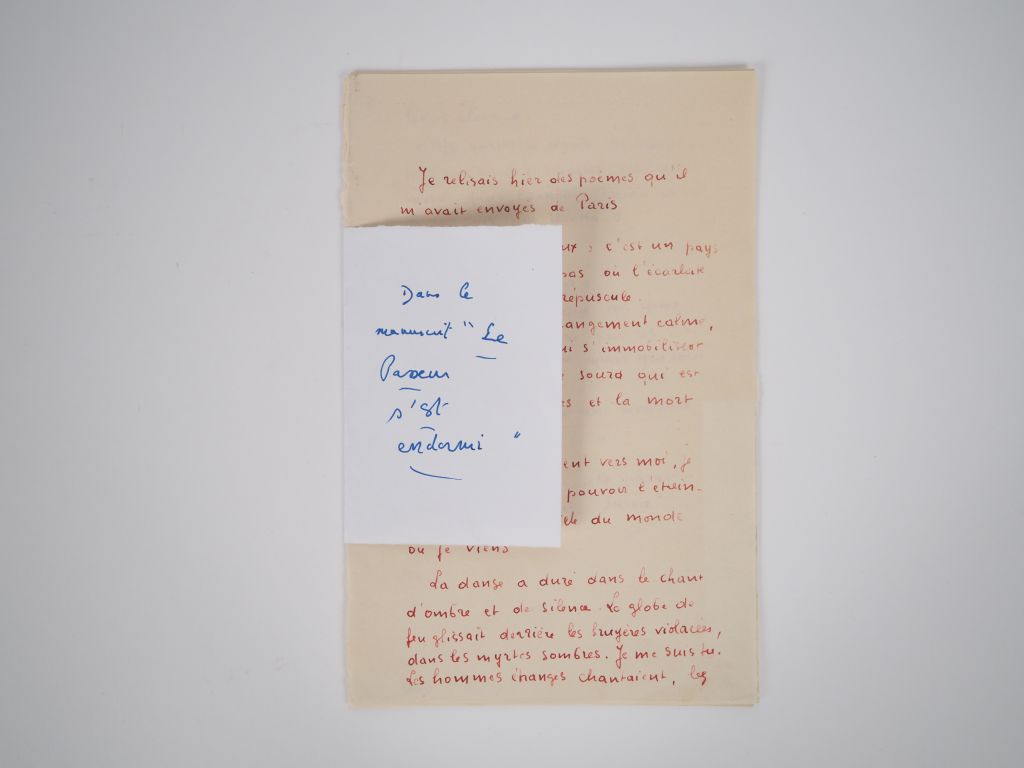 Je relisais hier des poèmes qu'il
m'avait envoyés de Paris
ux, c'est un pays
pas où l'écarlate
répuscule.
angement calme,
ui s'immobiliser
sourd qui est
es et la mort
ent vers moi, je
pouvoir l'étein-
du monde
où je viens
La danse a duré dans le chant
d'ombre et de silence. Le globe de
feu glissait derrière les bruyères violacées,
dans les myrtes sombres. Je me suis tu.
Les hommes étranges chantaient, les
Dans le
manuscrit "Le
s'est
endormi"